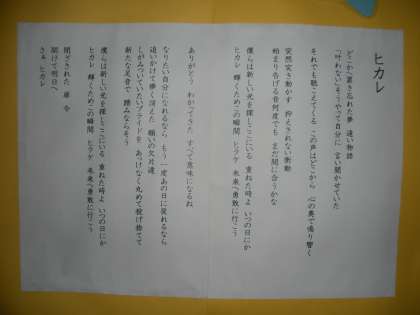 ヒカレ
どこかへ置き忘れた夢 遠い物語
「叶わない」そうやって自分に 言い聞かせていた
それでも聴こえてくる この声はどこから 心の奥で鳴り響く
突然突き動かす 抑えきれない衝動
始まり告げる音何度でも まだ間に合うかな
僕らは新しい光を探しここにいる 重ねた時よ いつの日にか
ヒカレ 輝くため この瞬間 ヒラケ 未来へ勇敢に行こう
ありがとう わかってきた すべて意味になるね
なりたい自分になれるなら もう一度あの日に戻れるなら
追いかけて儚く消えた 願いの欠片達
しがみついていたプライドを、あっけなく丸めて投げ捨てて
新たな足音で 踏みならそう
僕らは新しい光を探しここにいる 重ねた時よ いつの日にか
ヒカレ 輝くため この瞬間 ヒラケ 未来へ勇敢に行こう
閉ざされた 扉 今
開けて明日へ
さあ ヒカレ